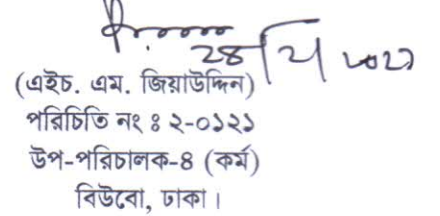 (এইচ. এম. জিয়াউদ্দিন)
পরিচিতি নং ঃ ২-০১২১
উপ-পরিচালক-৪ (কর্ম)
বিউবো, ঢাকা।